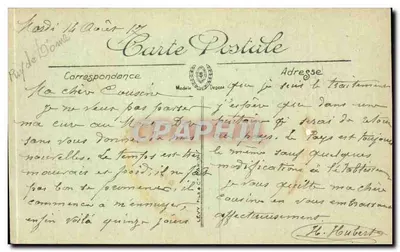 Mardi 14 Août 17
Puy de Dôme
Carte Postale
Correspondance
Adresse
Modèle Déposé
Ma chère Cousine
je ne veux pas passer
ma cure au
sans vous donner
nouvelles. Le temps est
mauvais et froid, il ne fait
pas bon se promener, il
commence à m'ennuyer,
enfin voilà quinze jours
que je suis le traitement
j'espère que dans une
je serai de
Le Pays est toujours
le même sauf quelques
modifications à
je vous quitte ma chère
cousine en vous embrassant
affectueusement
H. Hubert